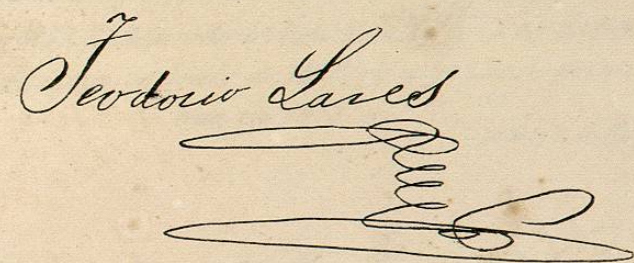 Teodosio Lares